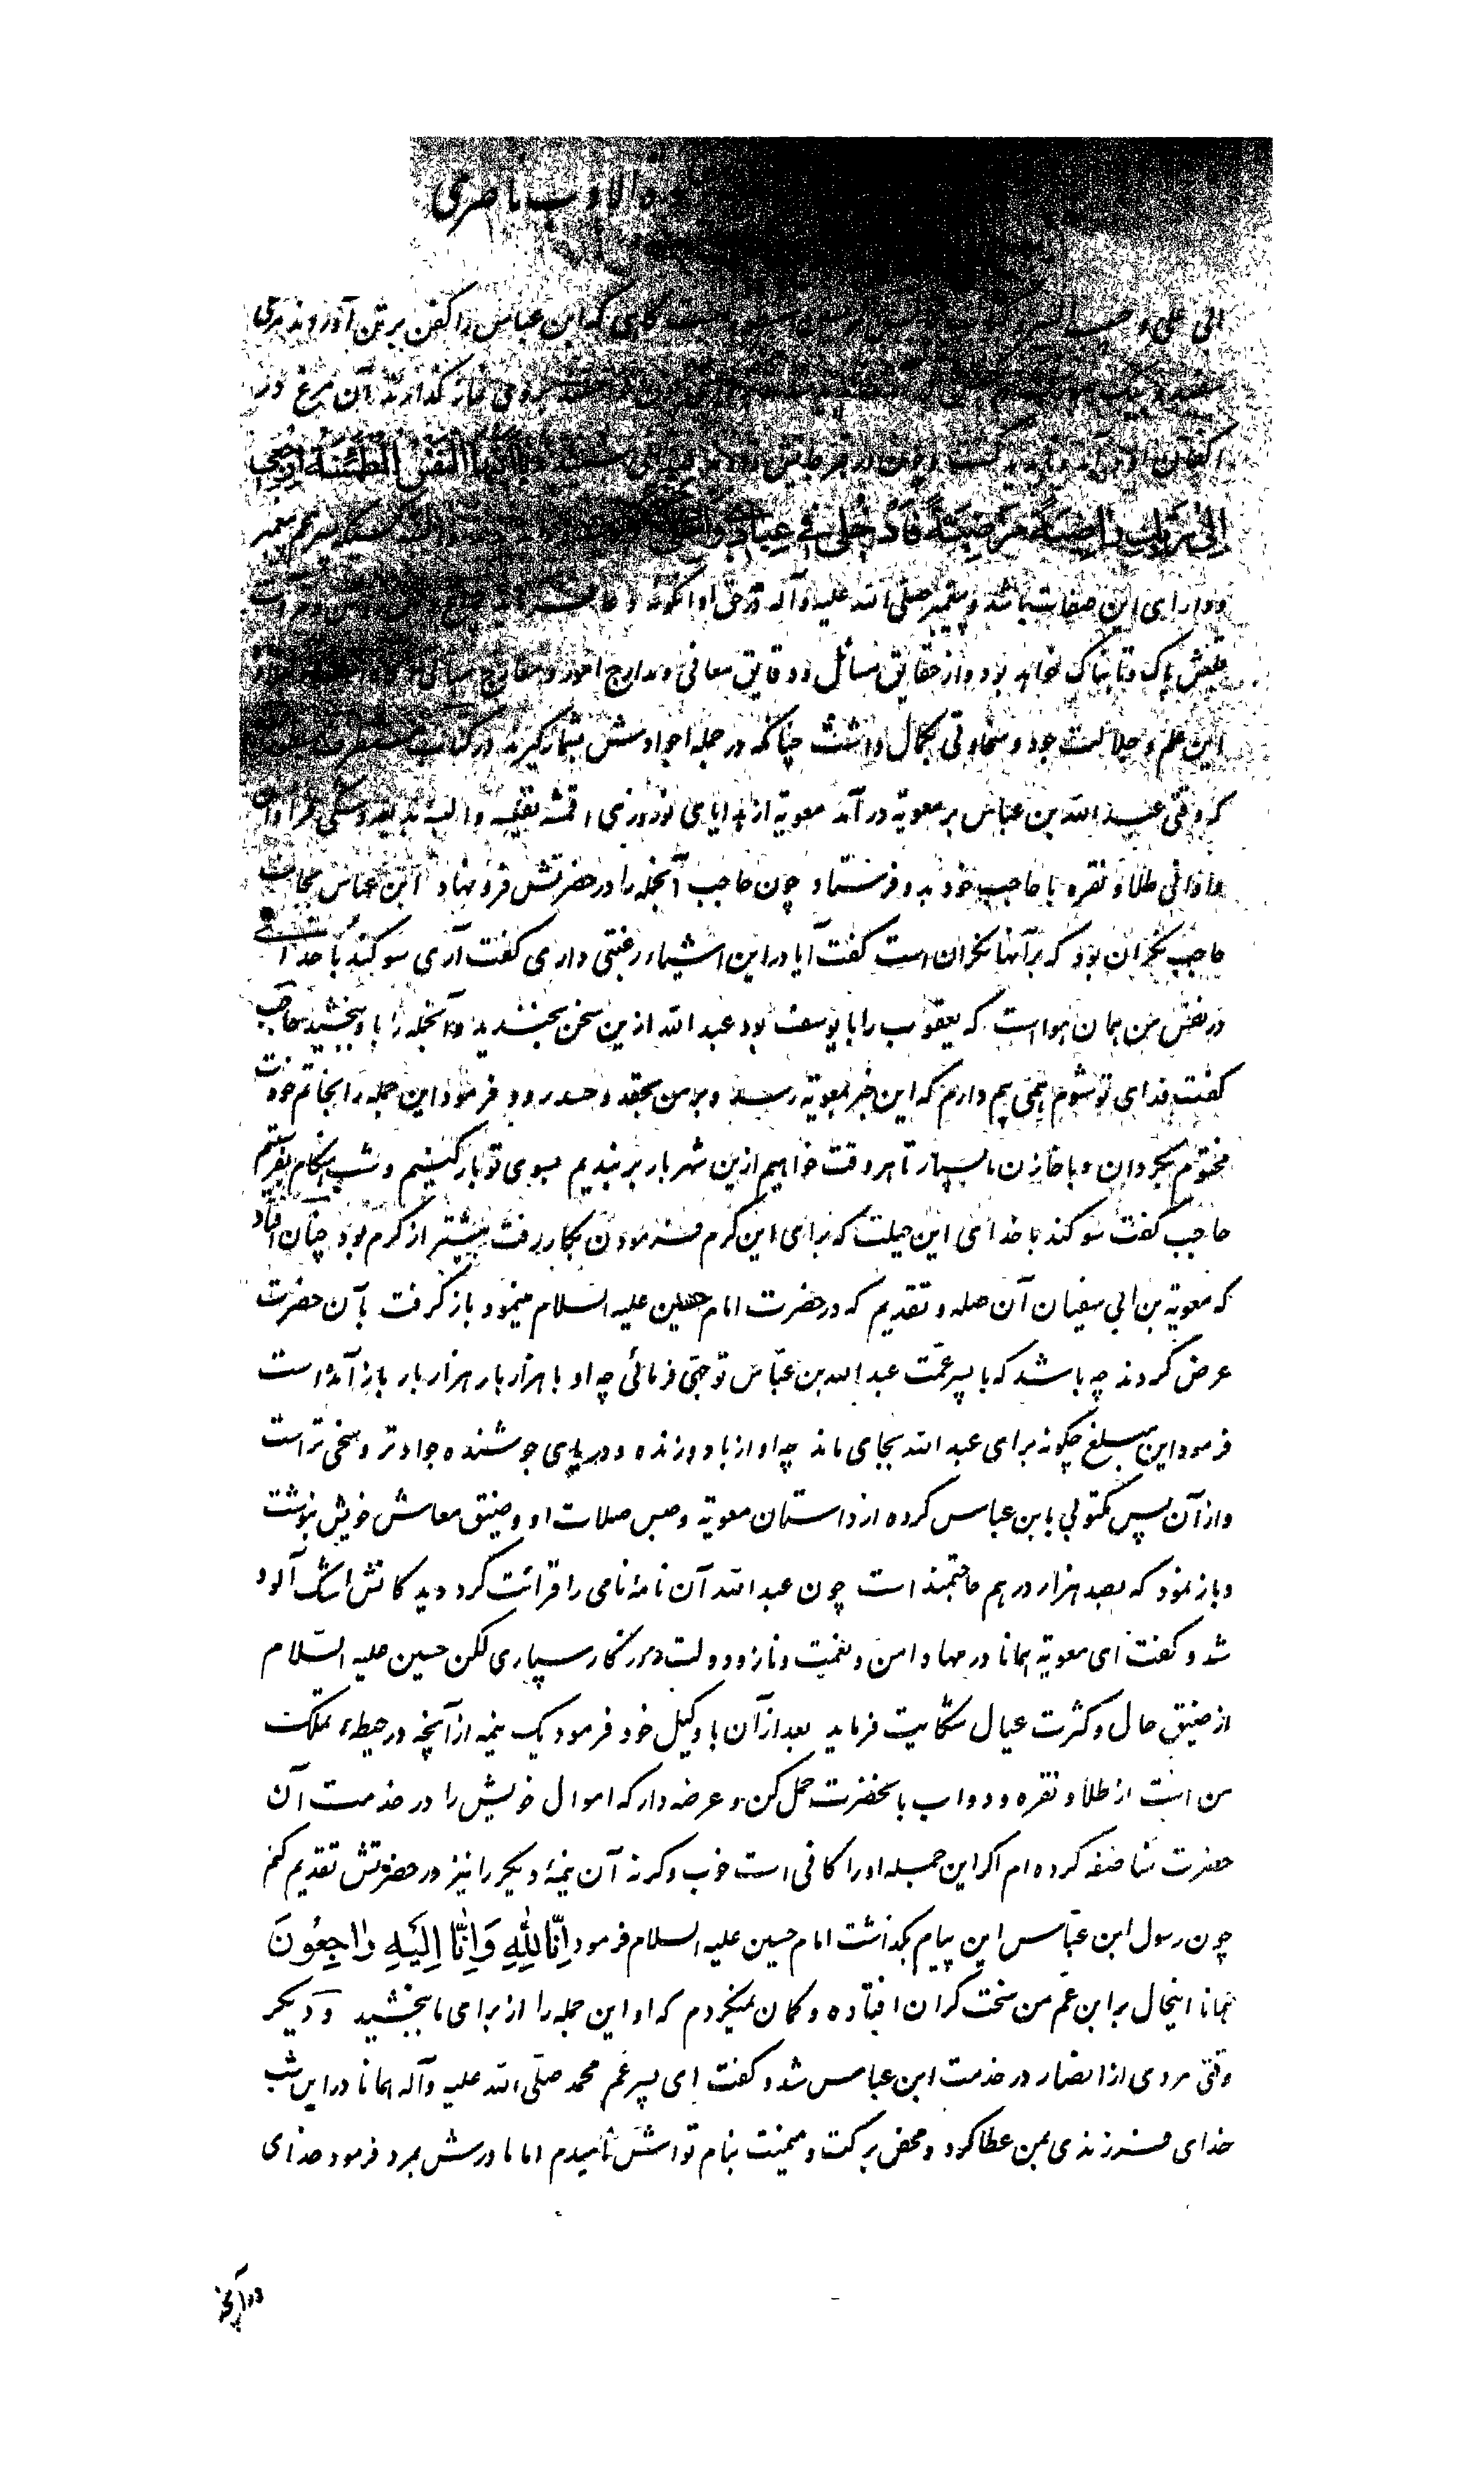 الادب ناصری
الی علی و حبیب گاهی که ابن عباس را کفن بر تن آوردند مرغی
سفید نماز گذارند آن مرغ در
اکفان او در آمد و ناپدید گشت و چون یا ایتها النفس المطمئنة ارجعی
الی ربک راضیة مرضیة فادخلی فی عبادی
و دارای این صفات باشد و پیغمبر صلی الله علیه و آله در حق او اینگونه دعا
پاک و تابناک خواهد بود و از حقایق مسائل و دقایق معانی و مدارج امور و معارج
این علم و جلالت جود و سخاوتی بکمال داشت چنانکه در جمله اجوادش بشمار گیرند در کتاب مستطرف مسطور
که وقتی عبد الله بن عباس بر معویة در آمد معویة از هدایای نوروزی اقمشه نفیسه و البسه بدیعه و مشکی فراوان
و اوانی طلا و نقره با حاجب خود بدو فرستاد چون حاجب آنجمله را در حضرتش فرو نهاد ابن عباس بجانب
حاجب نگران بود که بر آنها نگران است گفت آیا در این اشیاء رغبتی داری گفت آری سوگند با خدا
در نفس من همان هوا است که یعقوب را با یوسف بود عبد الله ازین سخن بخندید و آنجمله را با و بخشید حاجب
گفت فدای تو شوم همی بیم دارم که این خبر بمعویة رسد و بر من بحقد و حسد رود فرمود این جمله را بخاتم خودت
مختوم بگردان و با خازن ما بسپار تا هر وقت خواهیم ازین شهر بار بر بندیم بسوی تو بار کنیم و شب هنگام بفرستیم
حاجب گفت سوگند با خدای این حیلت که برای این کرم فرمودن بکار رفت بیشتر از کرم بود چنان افتاد
که معویة بن ابی سفیان آن صله و تقدیم که در حضرت امام حسین علیه السلام مینمود باز گرفت بآن حضرت
عرض کردند چه باشد که با پسر عمت عبد الله بن عباس توجهی فرمائی چه او با هزار بار هزار بار باز آمده است
فرمود این مبلغ چگونه برای عبد الله بجای ماند چه او از باد وزنده و دریای جوشنده جوادتر و سخی تر است
و از آن پس مکتوبی با بن عباس کرده از داستان معویة و حبس صلات او و ضیق معاش خویش بنوشت
و باز نمود که بصد هزار درهم حاجتمند است چون عبد الله آن نامهٔ نامی را قرائت کرد دیدگانش اشک آلود
شد و گفت ای معویة همانا در مهاد امن و نعمت و ناز و دولت روزگار سپاری لکن حسین علیه السلام
از ضیق حال و کثرت عیال شکایت فرماید بعد از آن با وکیل خود فرمود یک نیمه از آنچه در حیطهٔ مملکت
من است از طلا و نقره و دواب بآنحضرت حمل کن و عرضه دار که اموال خویش را در خدمت آن
حضرت مناصفه کرده ام اگر این جمله او را کافی است خوب و گرنه آن نیمهٔ دیگر را نیز در حضرتش تقدیم کنم
چون رسول ابن عباس این پیام بگذاشت امام حسین علیه السلام فرمود اِنّا لِلّٰهِ وَاِنّا اِلَیْهِ راجِعُونَ
همانا اینحال بر ابن عم من سخت گران افتاده و گمان نمیکردم که او این جمله را از برای ما ببخشید و دیگر
وقتی مردی از انصار در خدمت ابن عباس شد و گفت ای پسر عم محمد صلی الله علیه و آله همانا در این شب
خدای فرزندی بمن عطا کرد و محض برکت و میمنت بنام تواش نامیدم اما مادرش بمرد فرمود خدای